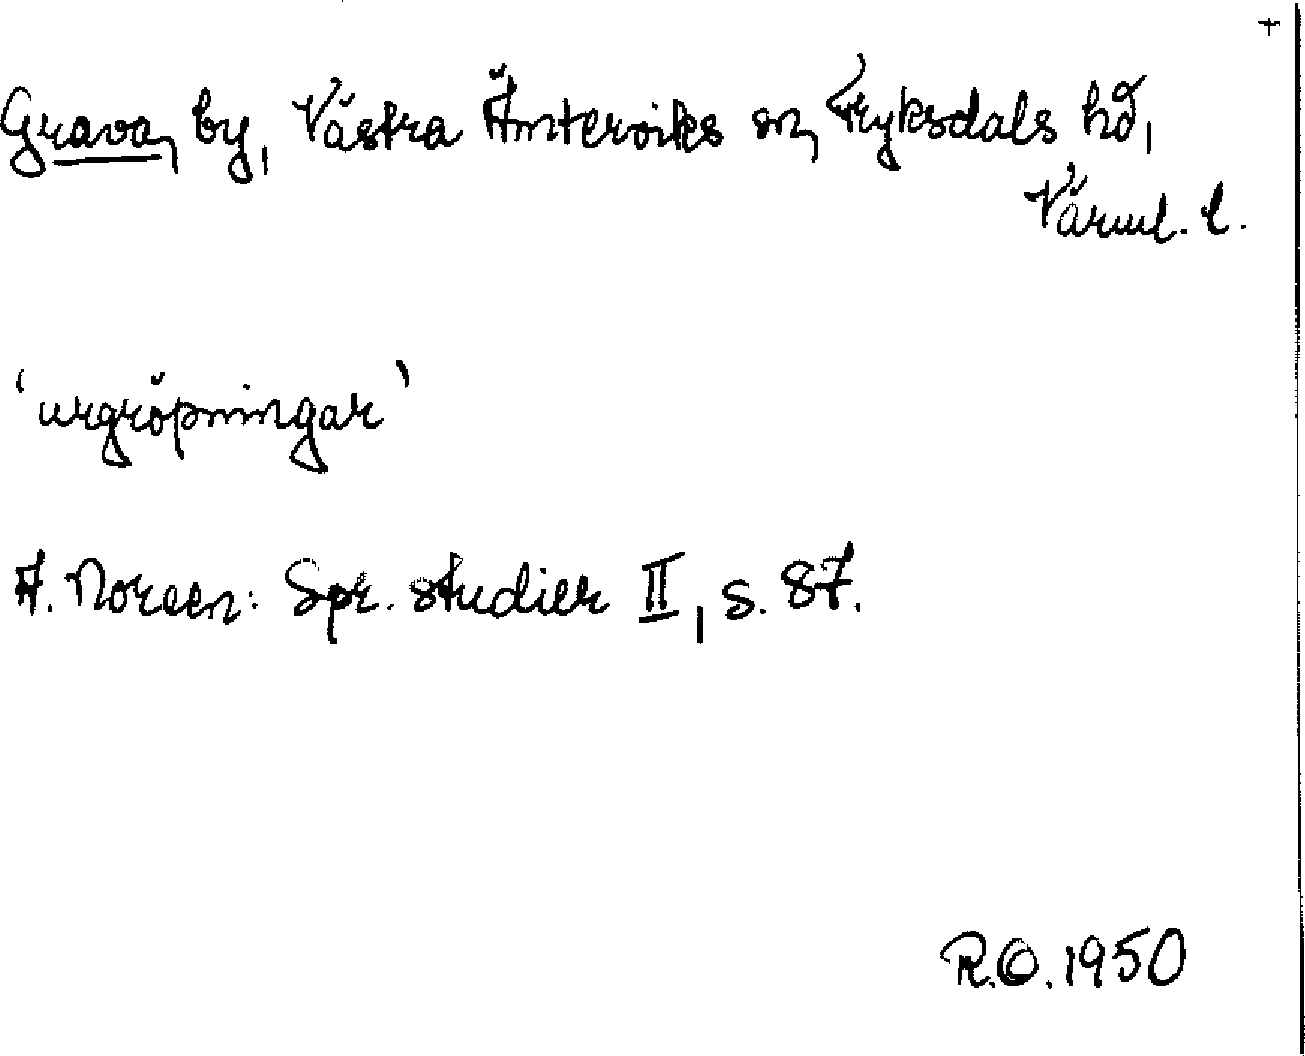 +
Grava, by, Västra Ämterviks sn, Fryksdals hd,
Värml. l.
'urgröpningar'
A. Noreen: Spr. studier II, s. 87.
R.O. 1950